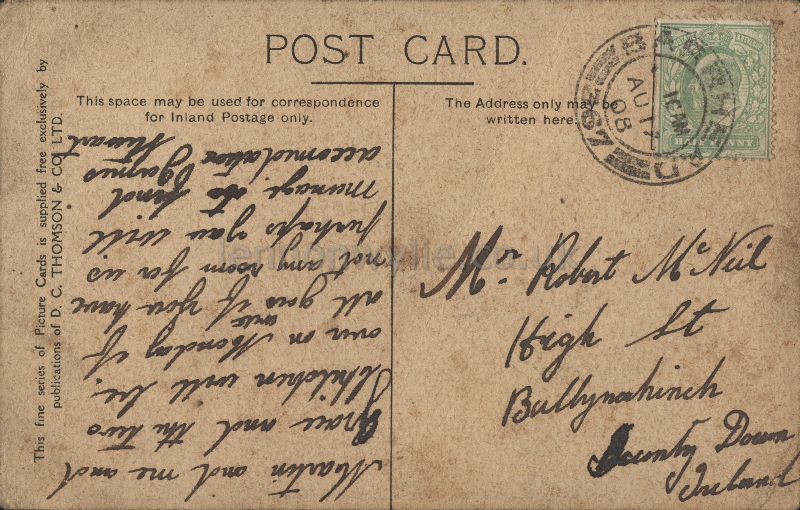 POST CARD.
This space may be used for correspondence
for Inland Postage only.
The Address only may be
written here.
This fine series of Picture Cards is supplied free exclusively by
publications of D. C. THOMSON & CO. LTD.
BARRHEAD
10 AM
AU 17
08
HALF PENNY
Martin and me and
Grace and the two
Children will be
over on Monday if
all goes well if you have
not any room for us
perhaps you will
manage to find
accomodation
Stewart
Mr. Robert McNeil
High St
Ballynahinch
County Down
Ireland
lennonwylie.co.uk